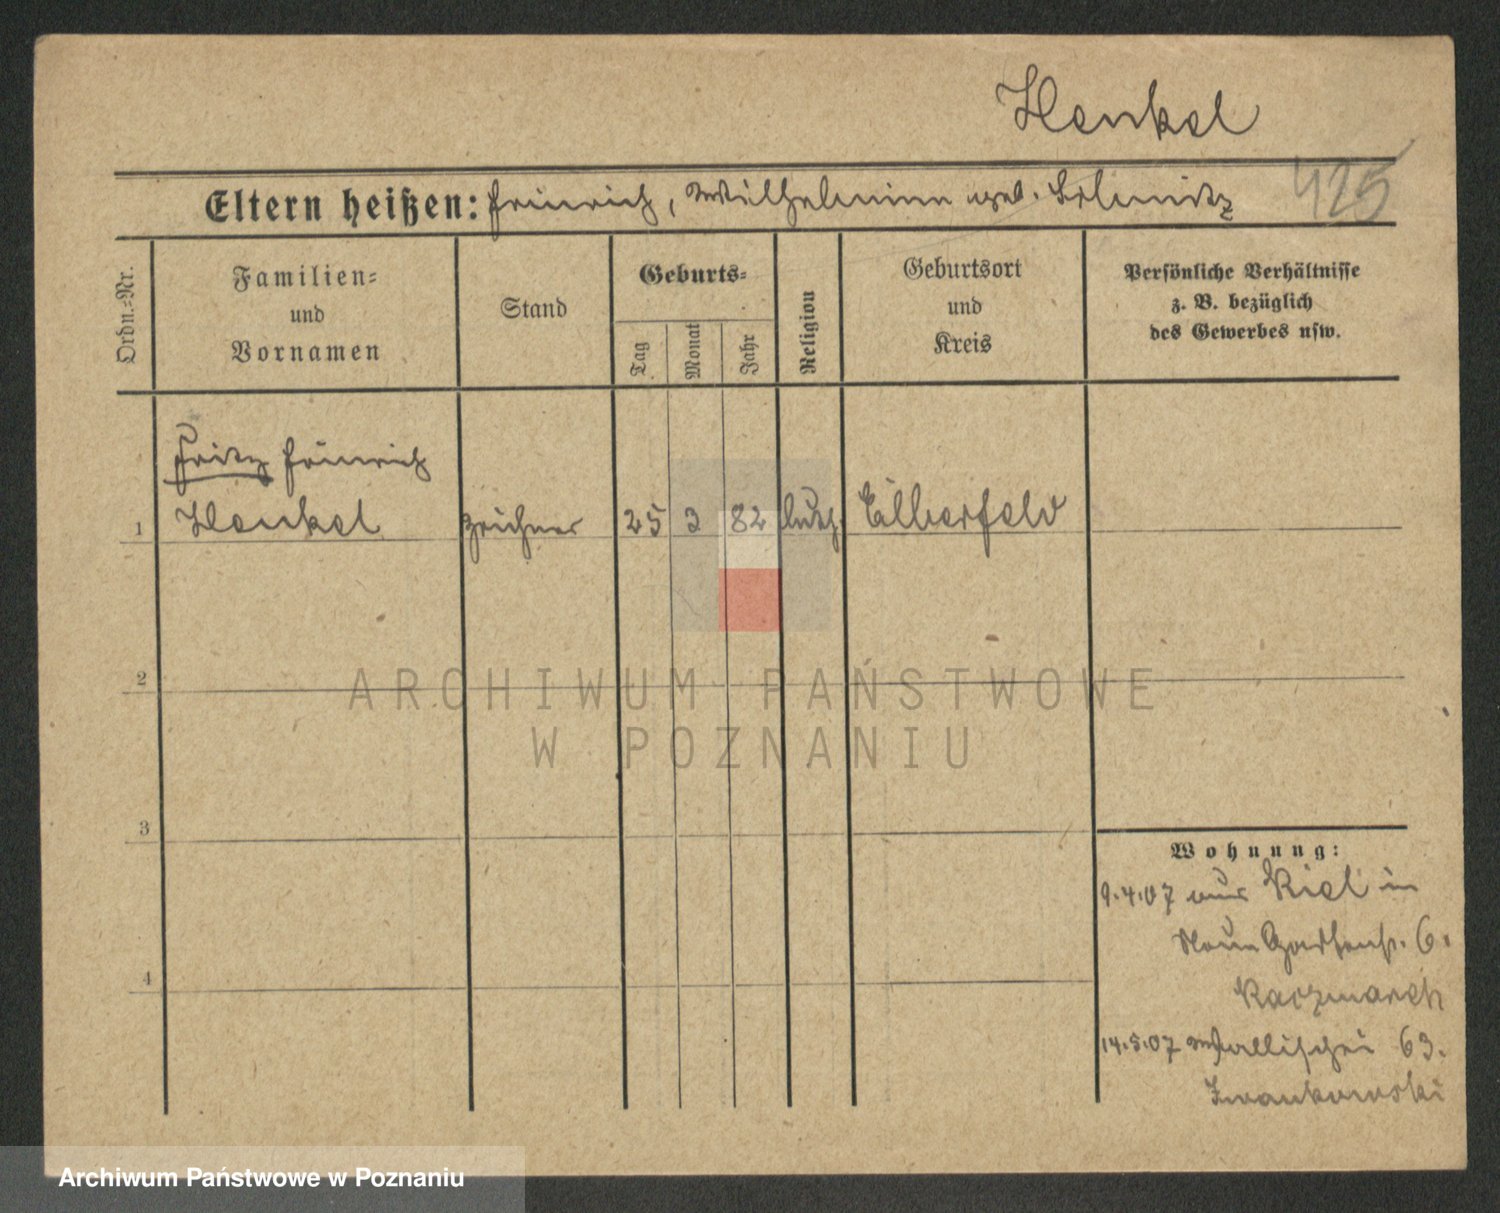 Henkel
Eltern heißen: Heinrich, Wilhelmine geb.
425
Ordn.-Nr.
Familien-
und
Vornamen
Stand
Geburts-
Tag
Monat
Jahr
Religion
Geburtsort
und
Kreis
Persönliche Verhältnisse
z. B. bezüglich
des Gewerbes usw.
Fritz Heinrich
1 Henkel Zeichner 25 3 82 luth. Elberfeld
2
3
4
Wohnung:
9.4.07 aus Kiel in
Neue Gartenstr. 6.
Kaczmarek
14.5.07 Wallischei 63.
Iwankowski
ARCHIWUM PAŃSTWOWE
W POZNANIU
Archiwum Państwowe w Poznaniu